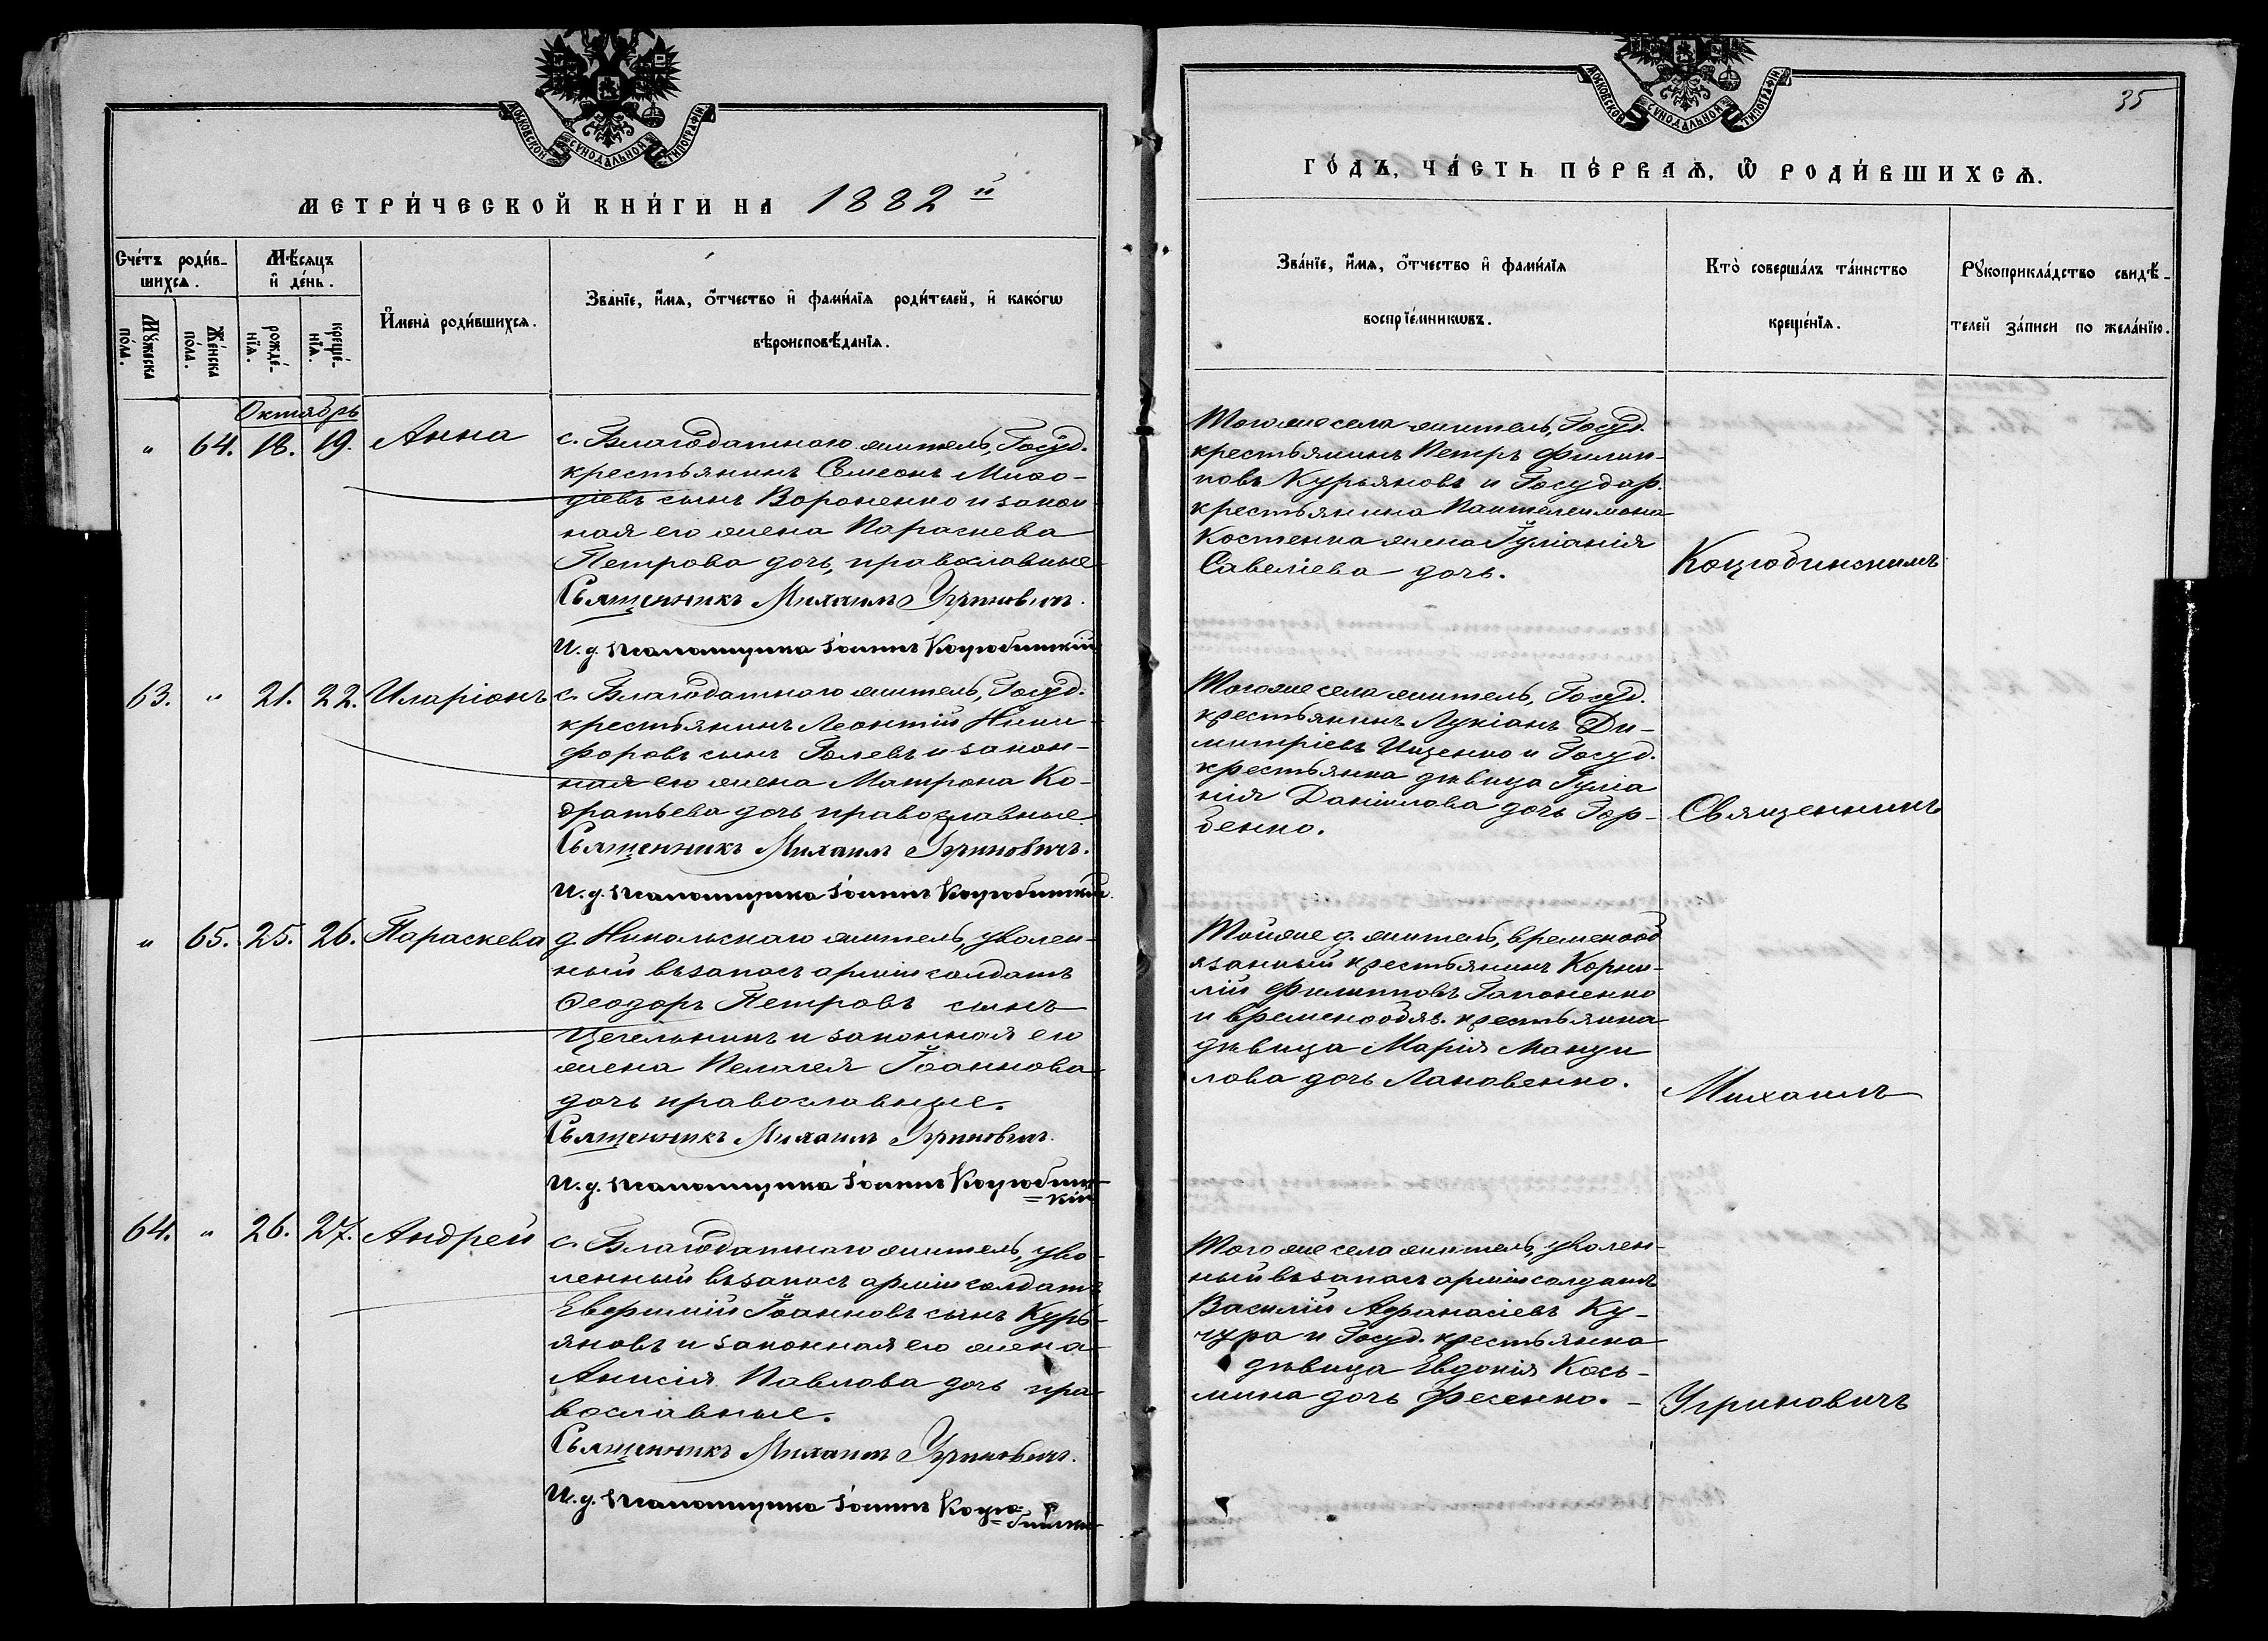 МОСКОВСКОЙ СѴНОДАЛЬНОЙ ТИПОГРАФІИ
МЕТРИ́ЧЕСКОЙ КНИ́ГИ НА 1882 й
Сче́тъ роди́в-
шихсѧ.
Мѣ́сяцъ
и҆ де́нь.
Мꙋ́жеска
по́ла.
Же́нска
по́ла.
рожде́-
нїѧ.
креще́-
нїѧ.
И҆мена̀ роди́вшихсѧ.
Зва́нїе, и҆́мѧ, ѻ҆́тчество и҆ фами́лїѧ роди́телей, и҆ како́гѡ
вѣроисповѣ́данїѧ.
Октябрь
" 64. 18. 19. Анна
с. Благодатнаго житель, Госуд.
крестьянинъ Семеонъ Мисо-
діевъ сынъ Вороненко и закон
ная его жена Параскева
Петрова дочь, православные
Священникъ Михаилъ Угриновичъ.
И. д. псаломщика Іоаннъ Коцюбинскій
63. " 21. 22. Иларіонъ
с. Благодатнаго житель, Госуд.
крестьянинъ Леонтій Ники-
форовъ сынъ Голевъ и закон-
ная его жена Матрона Ко-
дратьева дочь православные.
Священникъ Михаилъ Угриновичъ.
И. д. псаломщика Іоаннъ Коцюбинскій.
" 65. 25. 26. Параскева
д. Никольскаго житель, уволен-
ный въ запасъ арміи солдатъ
Ѳеодоръ Петровъ сынъ
Цегельникъ и законная его
жена Пелагея Іоаннова
дочь православные.
Священникъ Михаилъ Угриновичъ.
И. д. псаломщика Іоаннъ Коцюбинс-
=кій
64. " 26. 27. Андрей
с. Благодатнаго житель, уво-
ленный въ запасъ арміи солдатъ
Евфимій Іоанновъ сынъ Курь-
яновъ и законная его жена
Анисія Павлова дочь пра-
вославные.
Священникъ Михаилъ Угриновичъ.
И. д. псаломщика Іоаннъ Коцю-
=бинскі
МОСКОВСКОЙ СѴНОДАЛЬНОЙ ТИПОГРАФІИ
35
ГО́ДЪ, ЧА́СТЬ ПЕ́РВАѦ, Ѡ҆ РОДИ́ВШИХСѦ.
Зва́нїе, и҆́мѧ, ѻ҆́тчество и҆ фами́лїѧ
воспрїе́мникѡвъ.
Кто̀ соверша́лъ та́инство
креще́нїѧ.
Рꙋкоприкла́дство свидѣ́-
телей за́писи по жела́нїю.
Тогоже села житель, Госуд.
крестьянинъ Петръ Филип-
повъ Курьяновъ и Государ.
крестьянина Пантелеимона
Костенка жена Іуліанія
Савеліева дочь.
Коцюбинскимъ
Тогоже села житель, Госуд.
крестьянинъ Лукіанъ Ди-
митріевъ Ищенко и Госуд.
крестьянка дѣвица Іуліа
нія Даніилова дочь Гор-
бенко.
Священникъ
Тойже д. житель, временооб
язанный крестьянинъ Корни-
лій Филипповъ Гапоненко
и временообяз. крестьянка
дѣвица Марія Мануи
лова дочь Лановенко.
Михаилъ
Того же села житель, уволен-
ный въ запасъ арміи солдатъ
Василій Аѳанасіевъ Ку-
чура и Госуд. крестьянка
дѣвица Евдокія Кось-
мина дочь Фесенко. -
Угриновичъ